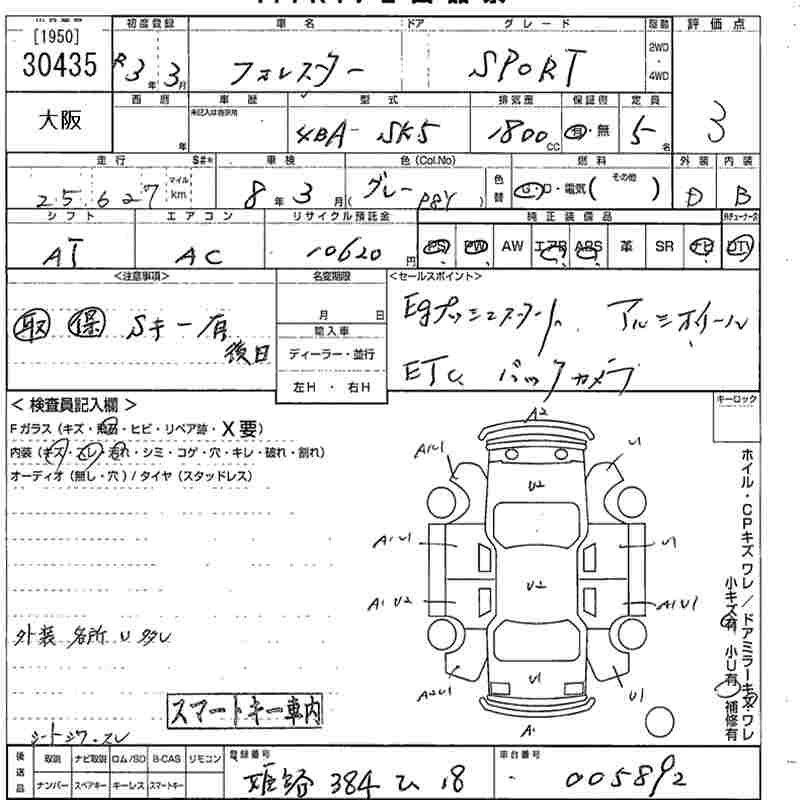 [1950]
30435
初度登録
車名
ドア
グレード
駆動
評価点
R3年3月
フォレスター
SPORT
2WD
・
4WD
3
大阪
西暦
車歴
型式
排気量
保証書
定員
年
未記入は自家用
4BA- SK5
1800cc
有・無
5名
走行
S#*
車検
色(Col.No)
色替
燃料
外装
内装
25,627
マイル
km
8年3月
(グレー P8Y)
・D・電気(その他)
D
B
シフト
エアコン
リサイクル預託金
純正装備品
AT
AC
10620円
PS
PW
AW
エアB
ABS
革
SR
ナビ
DTV
<注意事項>
名変期限
<セールスポイント>
取 保 Sキー有
後日
月 日
輸入車
ディーラー・並行
左H・右H
Egプッシュスタート、アルミホイール
ETC、バックカメラ
<検査員記入欄>
キーロック
Fガラス(キズ・飛石・ヒビ・リペア跡・X要)
内装(キズ・スレ・汚れ・シミ・コゲ・穴・キレ・破れ・割れ)
オーディオ(無し・穴)/タイヤ(スタッドレス)
A2
A1U1
U1
U2
A1U1
U1
U2
A1U2
A1U1
A2U1
U1
U1
A1
ホイル・CPキズワレ/ドアミラーキズ・ワレ
小キズ有 小U有 補修有
外装 各所U多し
スマートキー車内
シートシワ・スレ
後送品
取説
ナビ取説
ロム/SD
B-CAS
リモコン
ナンバー
スペアキー
キーレス
スマートキー
登録番号
姫路 384 ひ 18
車台番号
005892